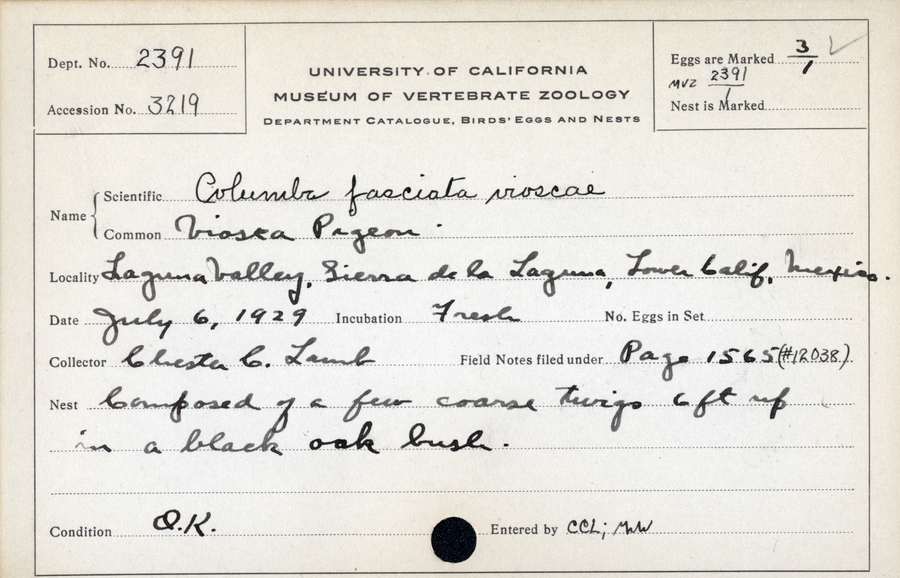 Dept. No. 2391
Accession No. 3219
UNIVERSITY OF CALIFORNIA
MUSEUM OF VERTEBRATE ZOOLOGY
DEPARTMENT CATALOGUE, BIRDS' EGGS AND NESTS
Eggs are Marked 3/1
MVZ 2391/1
Nest is Marked
Name
Scientific Columba fasciata vioscae
Common Viosca Pigeon.
Locality Laguna Valley, Sierra de la Laguna, Lower Calif, Mexico.
Date July 6, 1929 Incubation Fresh No. Eggs in Set
Collector Chester C. Lamb Field Notes filed under Page 1565 (#12038)
Nest Composed of a few coarse twigs 6 ft up
in a black oak bush.
Condition O.K. Entered by CCL;